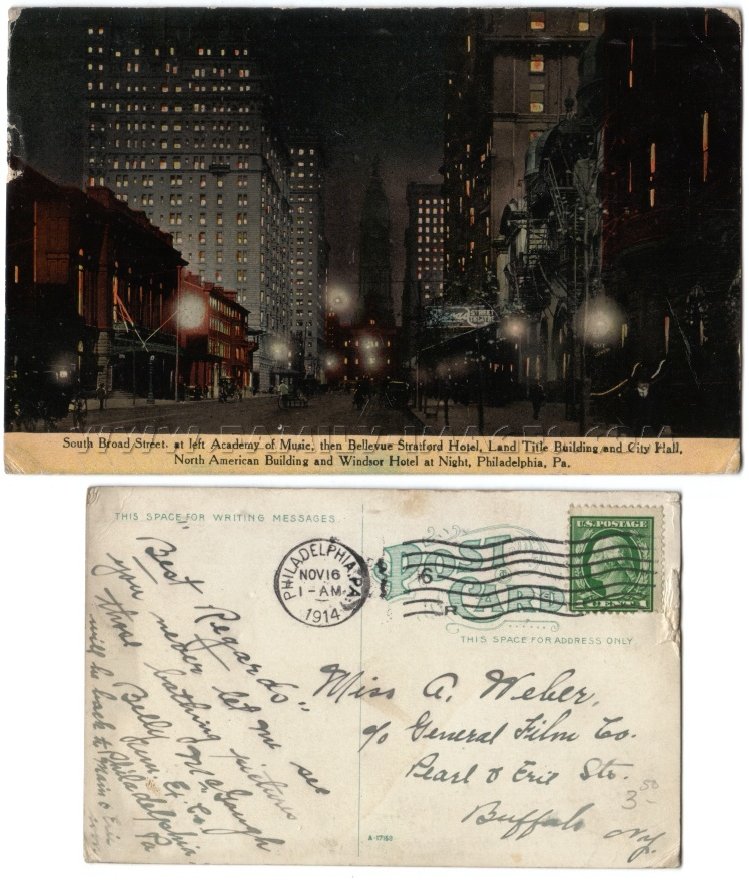 BROAD
STREET
THEATRE
South Broad Street, at left Academy of Music, then Bellevue Stratford Hotel, Land Title Building and City Hall,
North American Building and Windsor Hotel at Night, Philadelphia, Pa.
THIS SPACE FOR WRITING MESSAGES.
POST
CARD
THIS SPACE FOR ADDRESS ONLY
PHILADELPHIA, PA.
NOV 16
1 - AM
1914
6
R
U.S. POSTAGE
1 CENTS 1
"Best Regards"
you never let me see
those bathing pictures
Gaugh
Co.
will be back to Philadelphia, Pa
Main & Erie
Miss A. Weber,
c/o General Film Co.
Pearl & Erie Sts.
Buffalo N.Y.
3.50